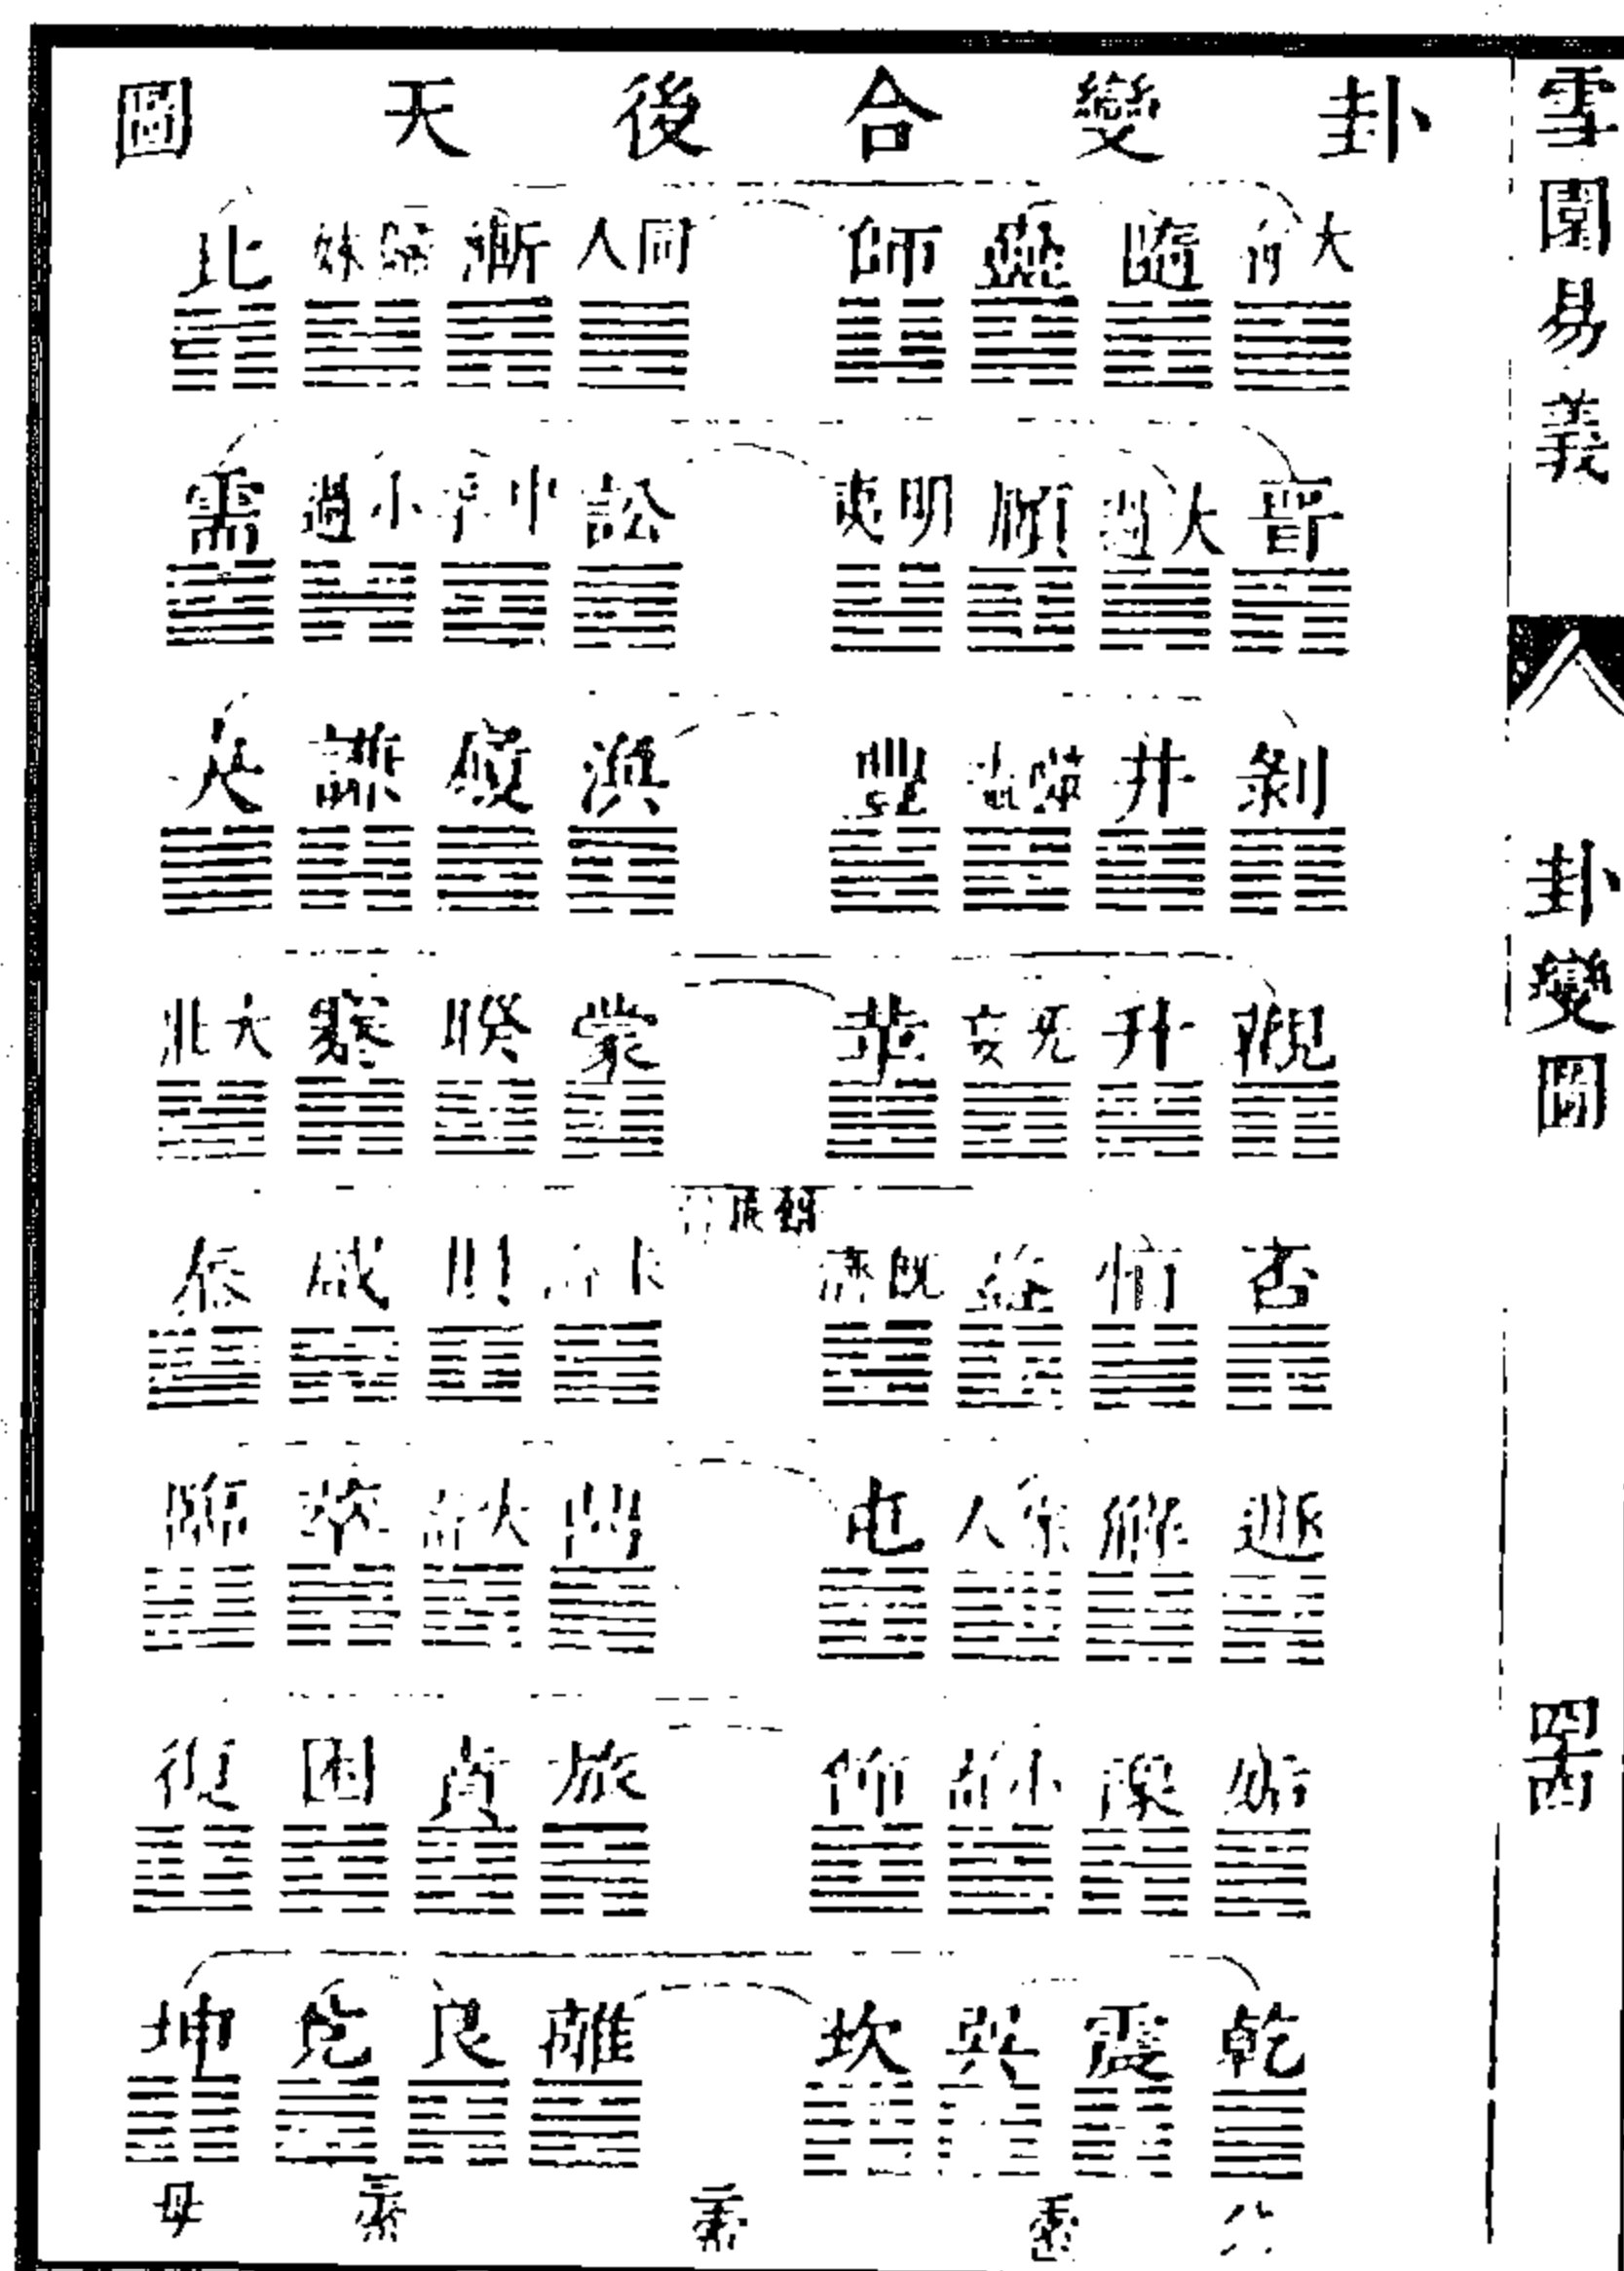 雪園易義
卦變圖
卦變合後天圖
大有 隨 蠱 師 同人 漸 歸妹 比
晉 大過 頤 明夷 訟 中孚 小過 需
剝 井 噬嗑 豐 渙 履 謙 夬
觀 升 无妄 革 蒙 睽 蹇 大壯
否 恒 益 既濟 未濟 損 咸 泰
遯 解 家人 屯 鼎 大畜 萃 臨
姤 豫 小畜 節 旅 賁 困 復
乾 震 巽 坎 離 艮 兌 坤
母